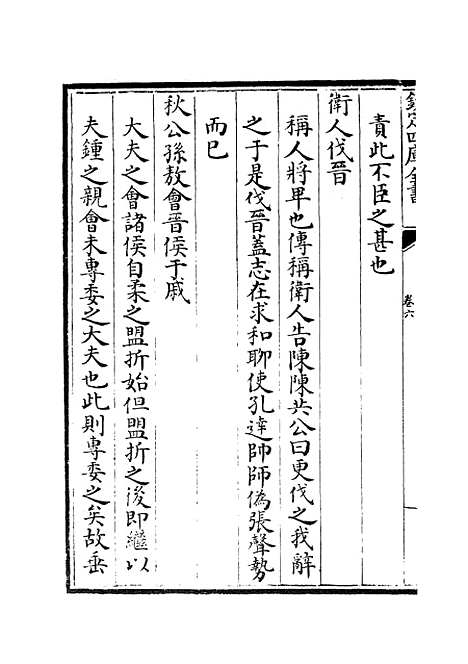 欽定四庫全書
卷六
責此不臣之甚也
衛人伐晉
稱人將卑也傳稱衛人告陳陳共公曰更伐之我辭
之于是伐晉蓋志在求和聊使孔達帥師偽張聲勢
而已
秋公孫敖會晉侯于戚
大夫之會諸侯自柔之盟折始但盟折之後即繼以
夫鍾之親會未專委之大夫也此則專委之矣故垂